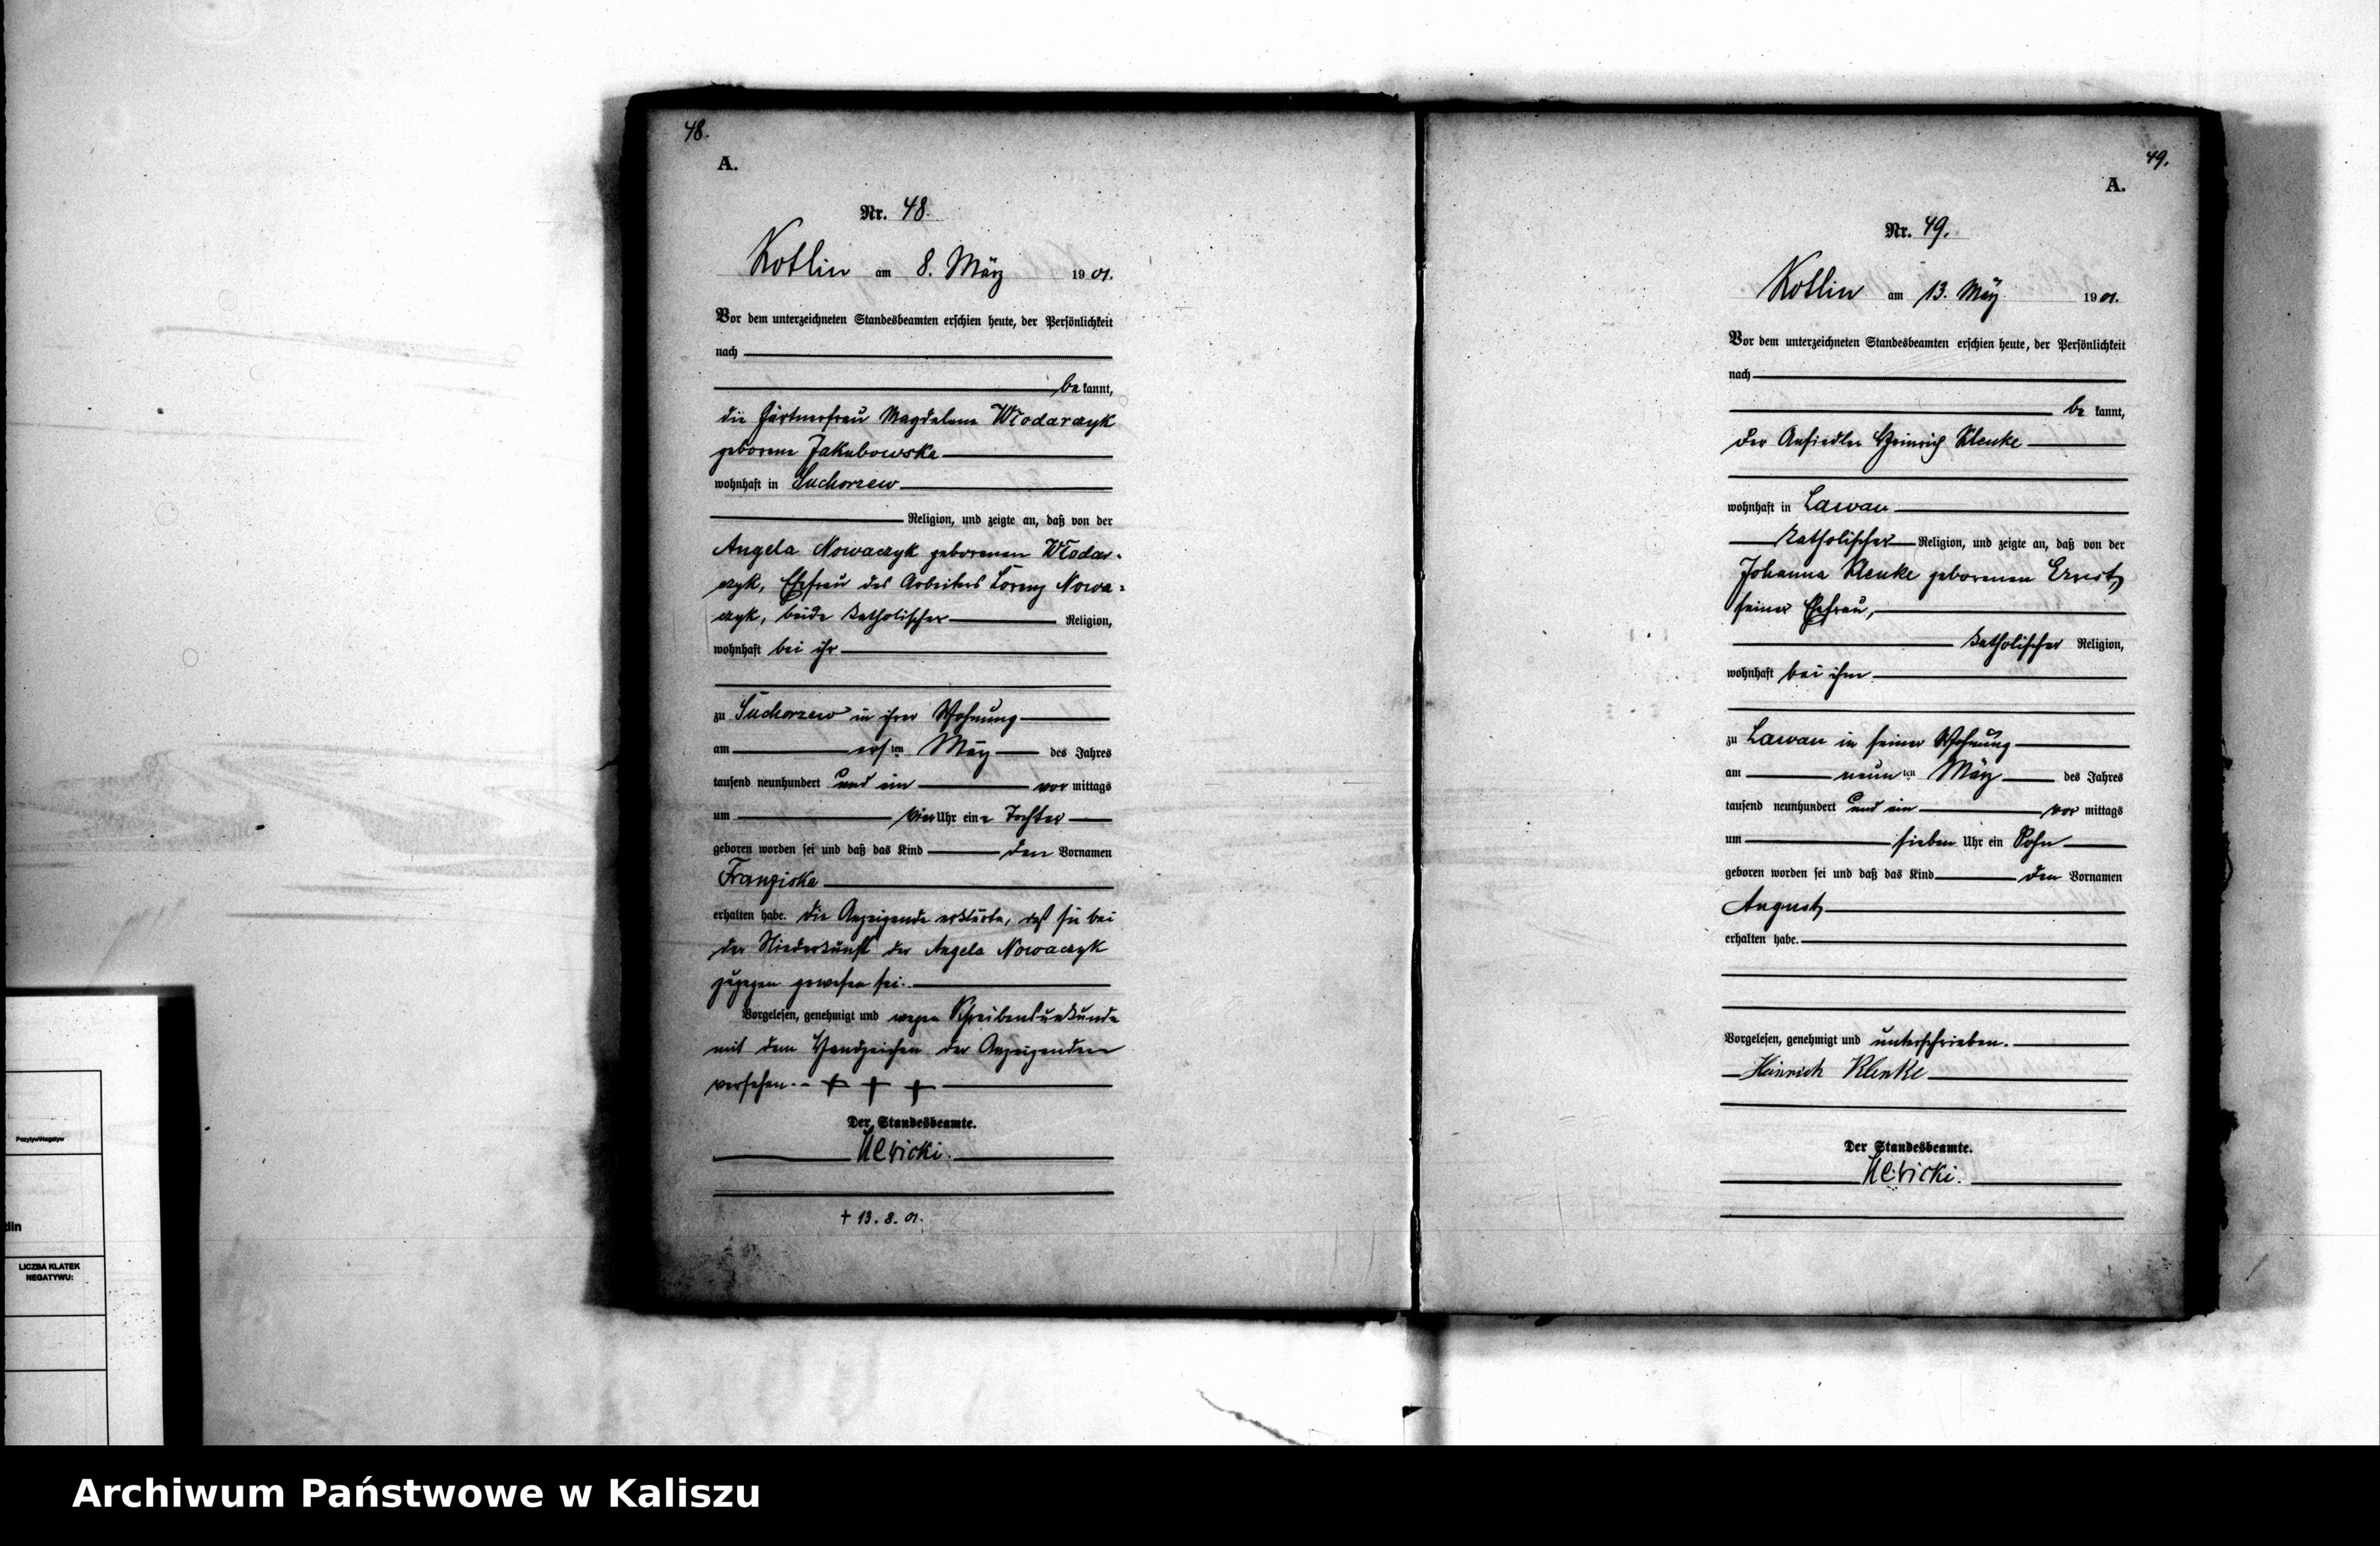 48.
A.
Nr. 48.
Kotlin am 8. März 1901.
Vor dem unterzeichneten Standesbeamten erschien heute, der Persönlichkeit
nach
be kannt,
die Gärtnerfrau Magdalena Włodarczyk
geborene Jakubowska
wohnhaft in Suchorzew
Religion, und zeigte an, daß von der
Angela Nowaczyk geborenen Włodar-
czyk, Ehefrau des Arbeiters Lorenz Nowa-
czyk, beide katholischer Religion,
wohnhaft bei ihr
zu Suchorzew in ihrer Wohnung
am ersten März des Jahres
tausend neunhundert und ein vor mittags
um vier Uhr eine Tochter
geboren worden sei und daß das Kind den Vornamen
Franziska
erhalten habe. Die Anzeigende erklärte, daß sie bei
der Niederkunft der Angela Nowaczyk
zugegen gewesen sei.
Vorgelesen, genehmigt und wegen Schreibensunkunde
mit dem Handzeichen der Anzeigenden
versehen. + + +
Der Standesbeamte.
† 13. 8. 01.
49.
A.
Nr. 49.
Kotlin am 13. März 1901.
Vor dem unterzeichneten Standesbeamten erschien heute, der Persönlichkeit
nach
be kannt,
der Ansiedler Heinrich Klenke
wohnhaft in Lawau
katholischer Religion, und zeigte an, daß von der
Johanna Klenke geborenen Ernst,
seiner Ehefrau,
katholischer Religion,
wohnhaft bei ihm
zu Lawau in seiner Wohnung
am neunten März des Jahres
tausend neunhundert und ein vor mittags
um sieben Uhr ein Sohn
geboren worden sei und daß das Kind den Vornamen
August
erhalten habe.
Vorgelesen, genehmigt und unterschrieben.
Heinrich Klenke
Der Standesbeamte.
Pozytyw/Negatyw
tlin
LICZBA KLATEK
NEGATYWU:
Archiwum Państwowe w Kaliszu